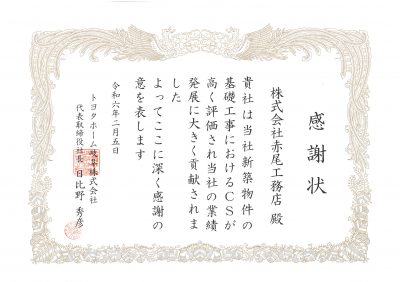 感謝状
株式会社赤尾工務店 殿
貴社は当社新築物件の
基礎工事におけるCSが
高く評価され当社の業績
発展に大きく貢献されま
した
よってここに深く感謝の
意を表します
令和六年二月五日
トヨタホーム岐阜株式会社
代表取締役社長 日比野 秀彦